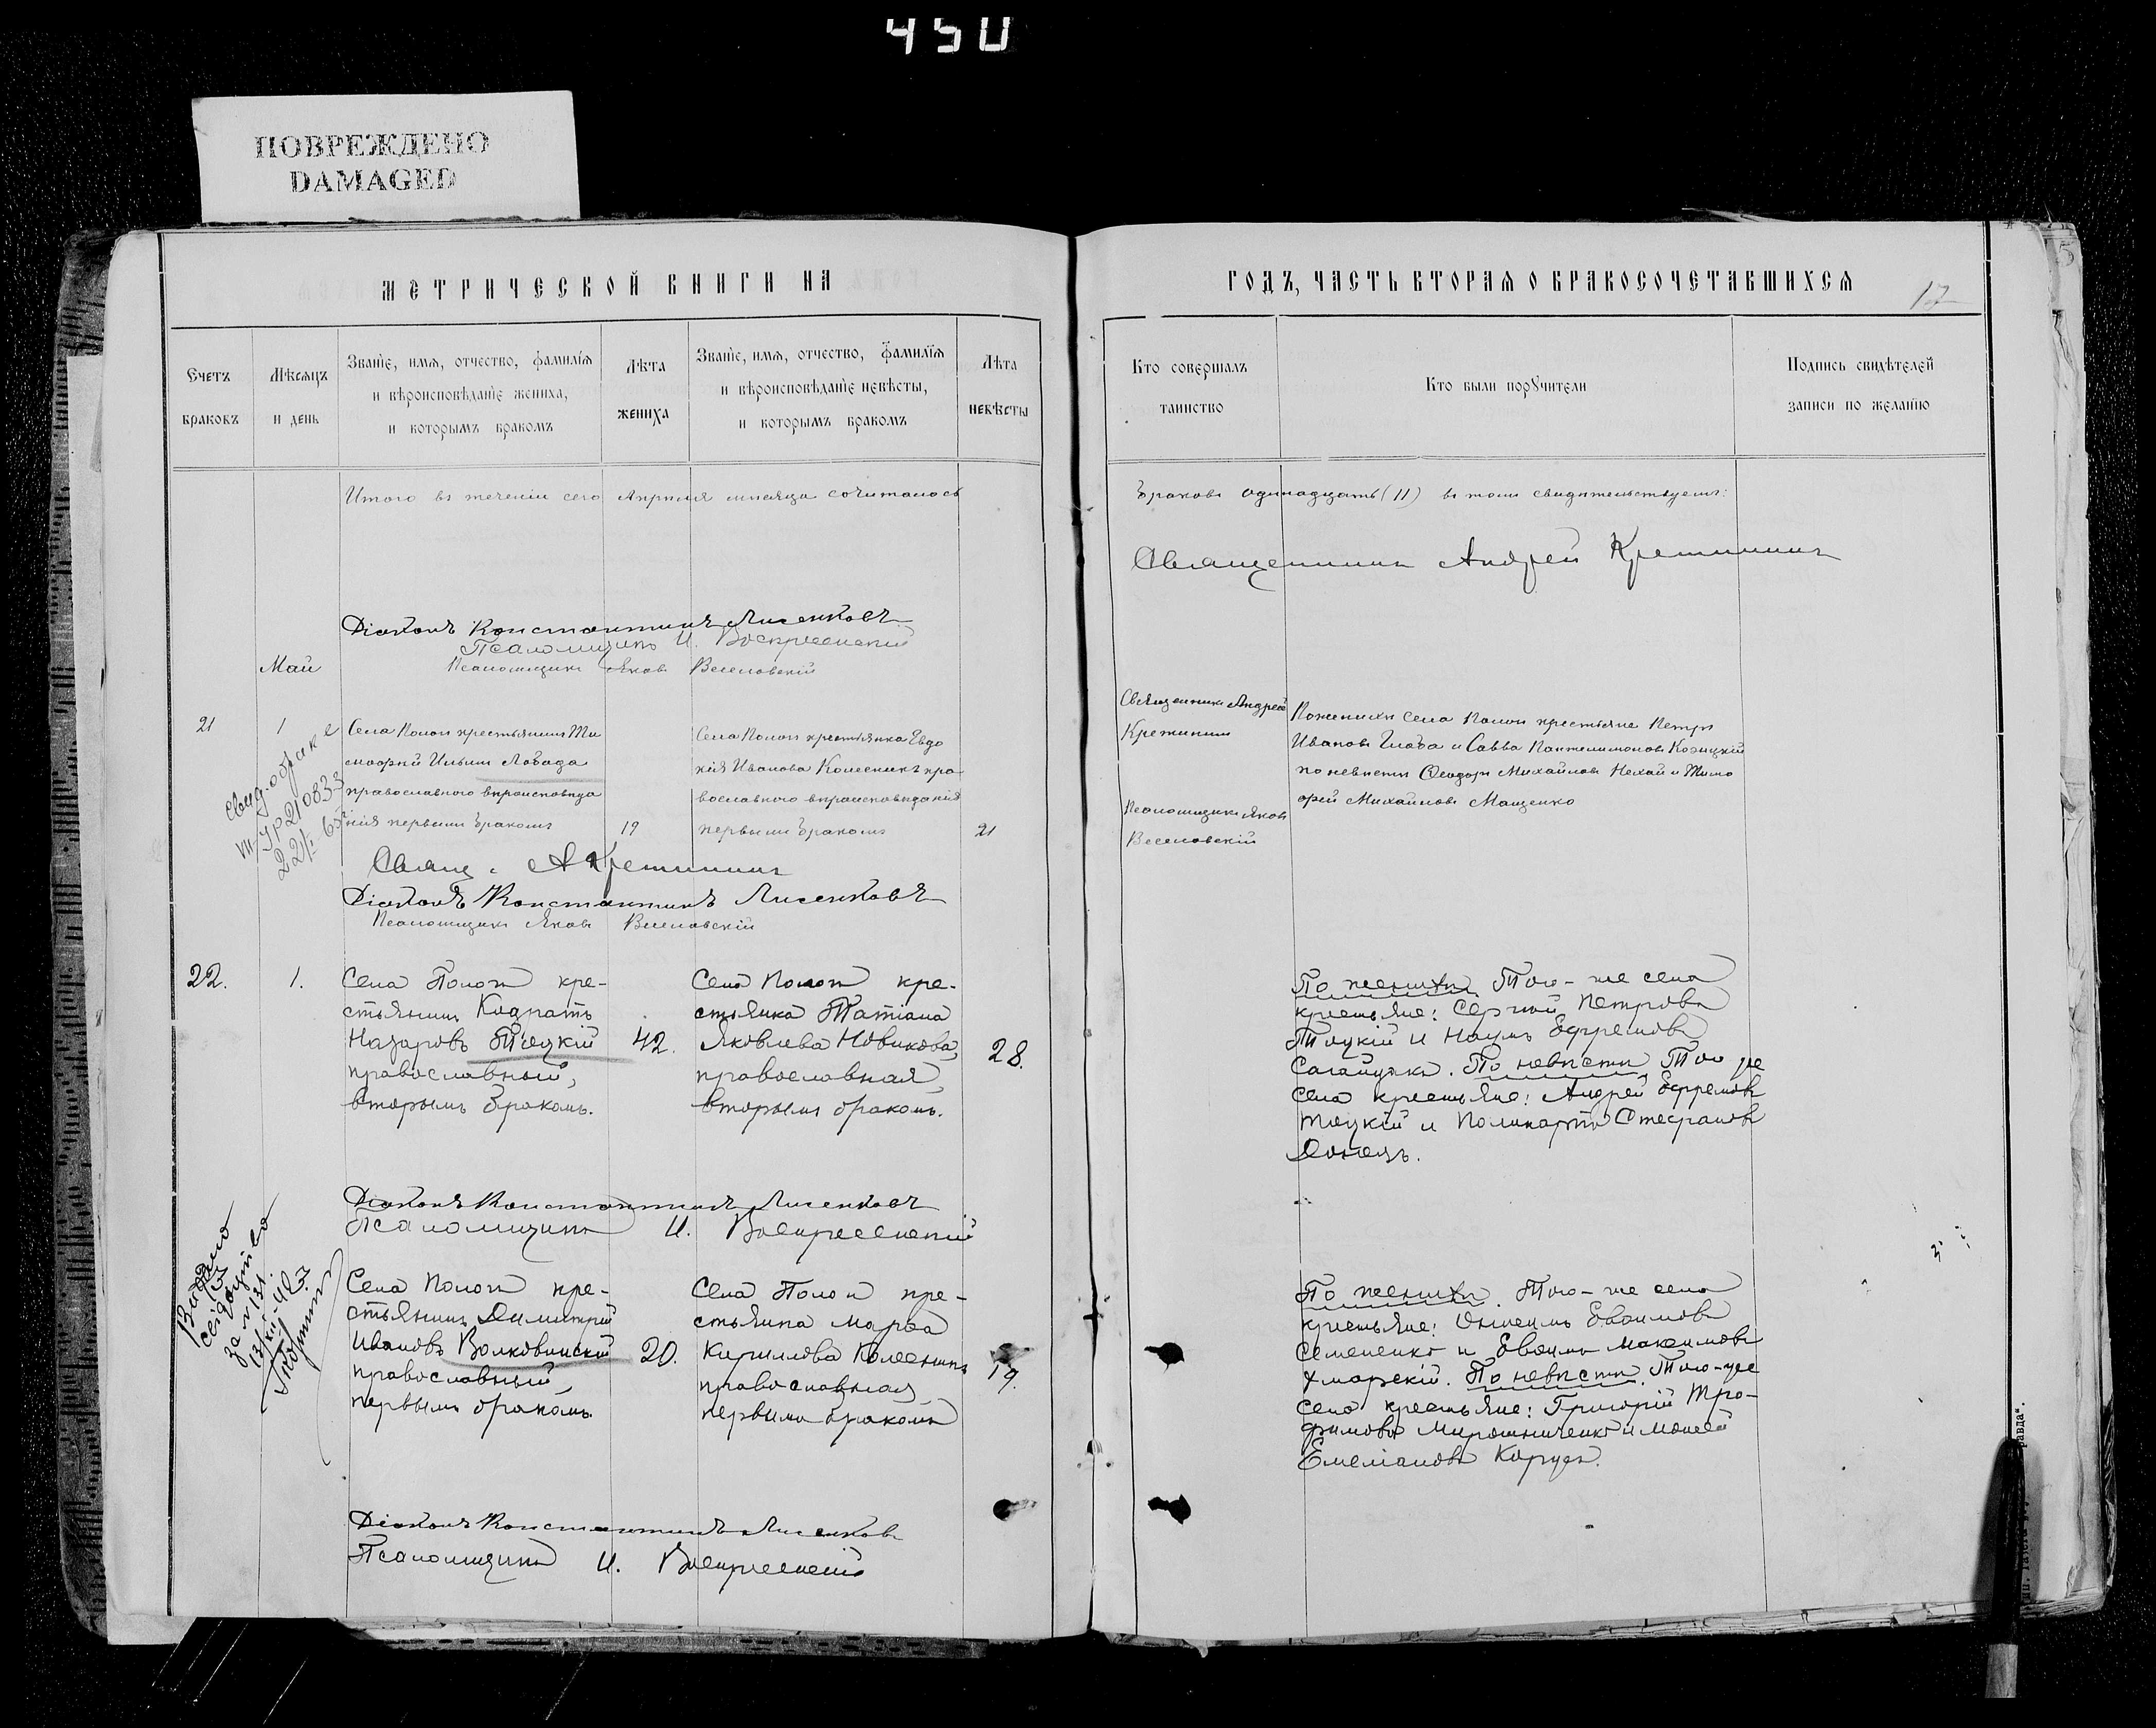 450
ПОВРЕЖДЕНО
DAMAGED
МЕТРИЧЕСКОЙ КНИГИ НА
ГОДЪ, ЧАСТЬ ВТОРАЯ О БРАКОСОЧЕТАВШИХСЯ
12
Счетъ браковъ
Мѣсяцъ и день
Званіе, имя, отчество, фамилія
и вѣроисповѣданіе жениха,
и которымъ бракомъ
Лѣта жениха
Званіе, имя, отчество, фамилія
и вѣроисповѣданіе невѣсты,
и которымъ бракомъ
Лѣта невѣсты
Кто совершалъ
таинство
Кто были поручители
Подпись свидѣтелей
записи по желанію
Итого въ теченіи сего Апрѣля мѣсяца сочиталось
браковъ одинадцать (11) въ томъ свидѣтельствуемъ:
Священникъ Андрей
Діаконъ Константинъ Лисенковъ
Псаломщикъ И. Воскресенскій
Псаломщикъ Яковъ Веселовскій
Май
21
1
Села Пологи крестьянинъ Ти
моѳей Ильинъ Лобода
православного вѣроисповѣда
нія первымъ бракомъ
19
Села Пологи крестьянка Евдо
кія Иванова Колесникъ пра
вославного вѣроисповѣданія
первымъ бракомъ
21
Священникъ Андрей
Псаломщикъ Яковъ
Веселовскій
По женихѣ села Пологи крестьяне Петръ
Ивановъ и Савва Пантелимоновъ
по невѣстѣ Ѳеодоръ Михайловъ Нехай и Тимо
ѳей Михайловъ Мащенко
Свид. о браке
210833
Свящ. А
Діаконъ Константинъ Лисенковъ
Псаломщикъ Яковъ Веселовскій
22.
1.
Села Пологи кре-
стьянинъ Кодратъ
Назаровъ Тоцкій
православный,
вторымъ бракомъ.
42.
Села Пологи кре-
стьянка Татіана
Яковлева Новикова,
православная,
вторымъ бракомъ.
28.
По женихѣ. Того-же села
крестьяне: Сергѣй Петровъ
Тоцкій и Наумъ Ефремовъ
Сагайдакъ. По невѣстѣ. Того же
села крестьяне: Андрей Ефремовъ
Тоцкій и Поликарпъ Стефановъ
Донецъ.
Діаконъ Константинъ Лисенковъ
Псаломщикъ И. Воскресенскій
Видано
за № 131
Села Пологи кре-
стьянинъ Димитрій
Ивановъ Волковинскій
православный,
первымъ бракомъ.
20.
Села Пологи кре-
стьянка Марѳа
Кириллова Колесникъ
православная
первымъ бракомъ
19.
По женихѣ. Того-же села
крестьяне: Евѳимовъ
Семененко и Евѳимъ Максимовъ
Хмарскій. По невѣстѣ. Того-же
села крестьяне: Григорій Тро-
фимовъ Мирошниченко и Моисей
Емеліановъ
Діаконъ Константинъ Лисенковъ
Псаломщикъ И. Воскресенскій